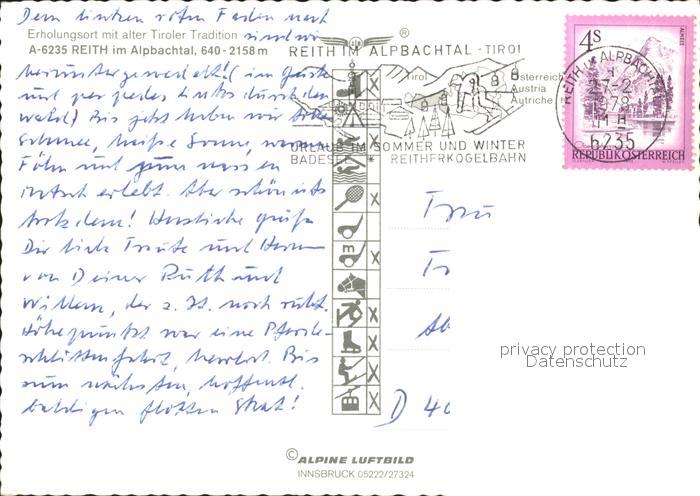 Dem linken roten Faden nach
Erholungsort mit alter Tiroler Tradition sind wir
A-6235 REITH im Alpbachtal, 640-2158 m
heruntergewedelt! (im Geiste
und per pedes links durch den
Wald) Bis jetzt haben wir
Schnee, heiße Sonne, warmen
Föhn und nassen
erlebt. Aber schön ists
trotzdem! Herzliche Grüße
Dir liebe Traute und Herrn
von Deiner Ruth und
Willem, der z. Zt. noch ruht.
Höhepunkt war eine Pferde-
schlittenfahrt, herrlich. Bis
zum nächsten, hoffentl.
baldigen flotten Skat!
REITH IM ALPBACHTAL - TIROL
®
Tirol
Österreich
Austria
Autriche
URLAUB IM SOMMER UND WINTER
BADESEE * REITHERKOGELBAHN
m
4s
ALMSEE
REITH IM ALPBACHTAL
27.-2.
78
6235
REPUBLIK ÖSTERREICH
Frau
Tr
D 40
privacy protection
Datenschutz
© ALPINE LUFTBILD
INNSBRUCK 05222/27324